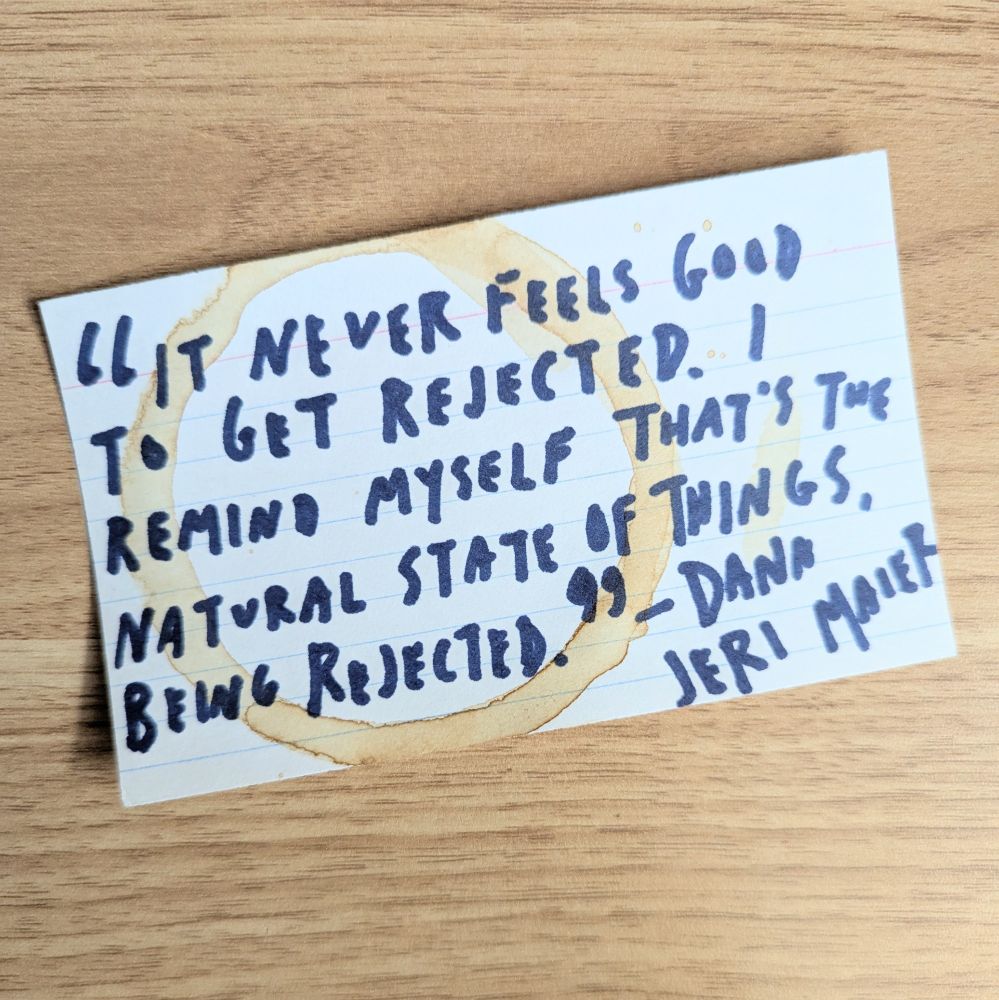 “IT NEVER FEELS GOOD
TO GET REJECTED. I
REMIND MYSELF THAT'S THE
NATURAL STATE OF THINGS,
BEING REJECTED.” — DANA
JERI MAIER